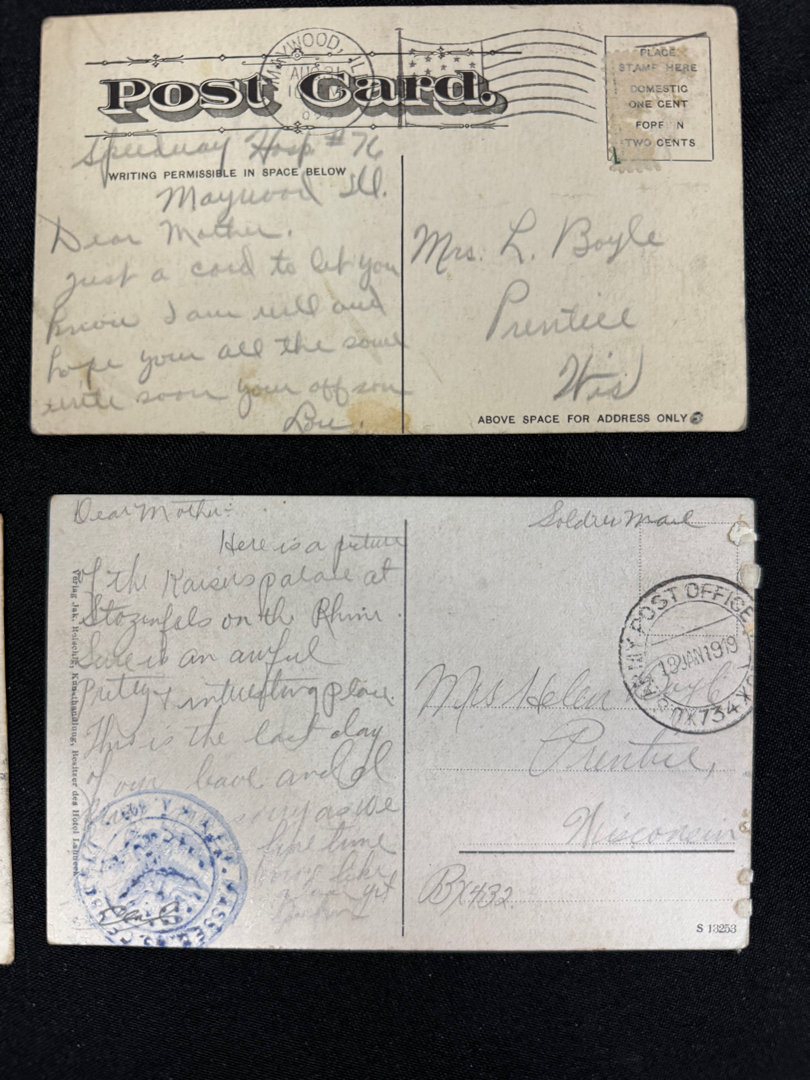 MAYWOOD, IL
AUG 21
PLACE
STAMP HERE
DOMESTIC
ONE CENT
FOREIGN
TWO CENTS
Post Card.
Speedway Hosp #76
WRITING PERMISSIBLE IN SPACE BELOW
Maywood Ill.
Dear Mother.
just a card to let you
know I am well and
hope your all the same
will soon your off son
Mrs. L. Boyle
Prentice
Wis
ABOVE SPACE FOR ADDRESS ONLY
Dear Mother:
Here is a picture
of the Kaisers palace at
Stozenfels on the Rhine.
Sure is an awful
pretty & interesting place.
This is the last day
of our leave and I
sorry as we
fine time
Soldier Mail
ARMY POST OFFICE
13 JAN 1919
734
Mrs Helen Boyle
Prentice,
Wisconsin
BX432.
S 13253
Verlag Jak. Kunsthandlung, Besitzer des Hotel Lahneck